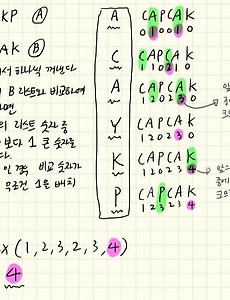 KP Ⓐ
AK Ⓑ
에서 하나씩 꺼낸다
B 리스트와 비교하여
라면
리스트 숫자 중
보다 1 큰 숫자를
다.
비교 숫자가
무조건 1을 배치
A CAPCAK
0 1 0 0 1 0
C CAPCAK
A CAPCAK
1 2 0 2 3 0
Y CAPCAK
1 2 0 2 3 0
K CAPCAK
1 2 0 2 3 4
P CAPCAK
1 2 3 2 3 4
x (1, 2, 3, 2, 3, 4)
4